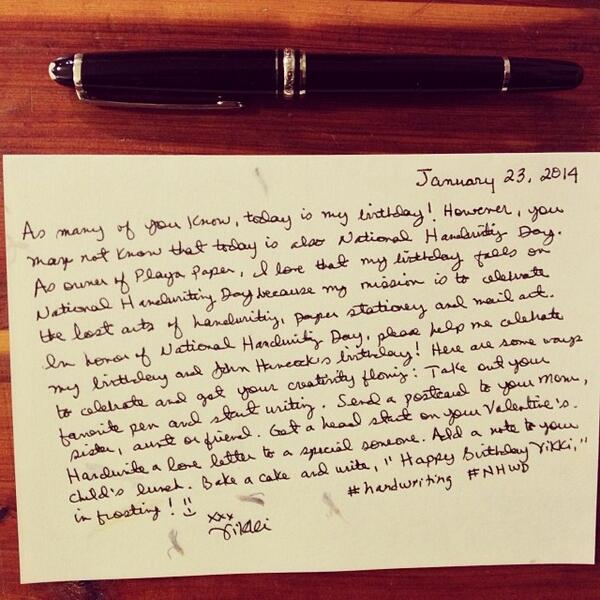 January 23, 2014
As many of you know, today is my birthday! However, you
may not know that today is also National Handwriting Day.
As owner of Playa Paper, I love that my birthday falls on
National Handwriting Day because my mission is to celebrate
the lost arts of handwriting, paper stationery and mail art.
In honor of National Handwriting Day, please help me celebrate
my birthday and John Hancock's birthday! Here are some ways
to celebrate and get your creativity flowing: Take out your
favorite pen and start writing. Send a postcard to your Mom,
sister, aunt or friend. Get a head start on your Valentine's.
Handwrite a love letter to a special someone. Add a note to your
child's lunch. Bake a cake and write, "Happy Birthday Vikki,"
in frosting!
#handwriting #NHWD
xxx
Vikki